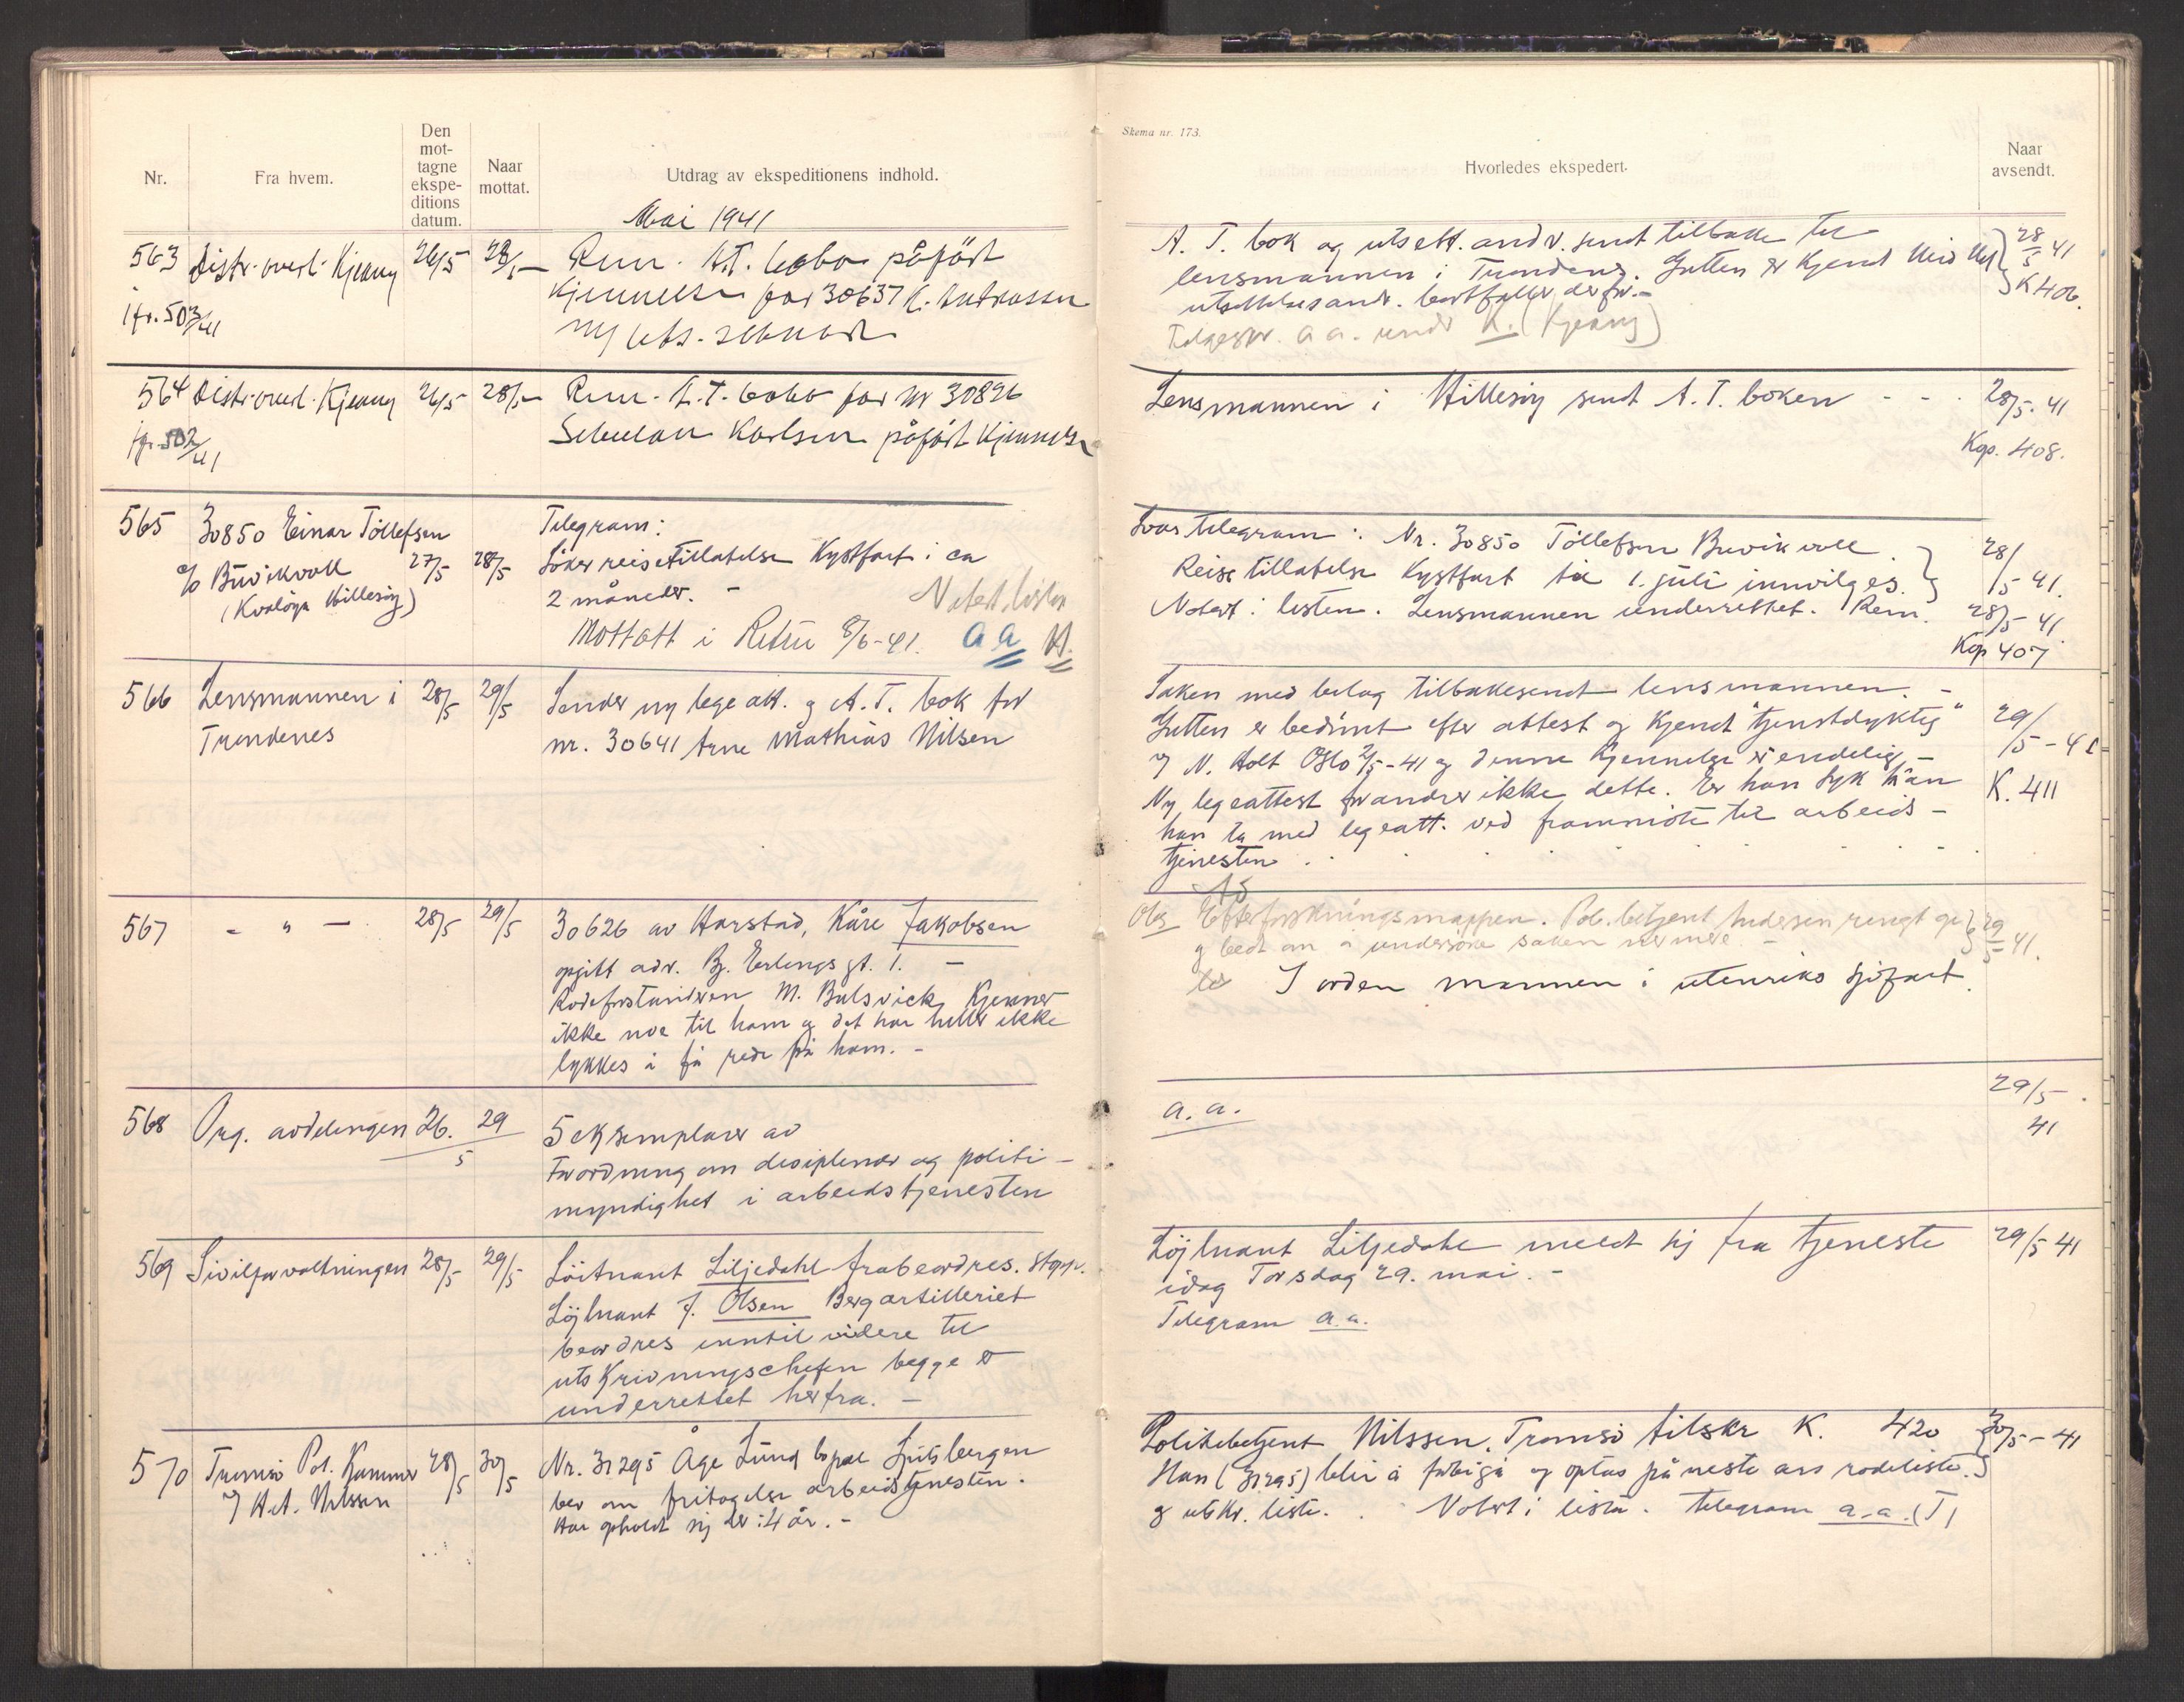 Skema nr. 173.
Nr.
Fra hvem.
Den mot-tagne ekspe-ditions datum.
Naar mottat.
Utdrag av ekspeditionens indhold.
Hvorledes ekspedert.
Naar avsendt.
Mai 1941
563 Distr. Kjeang 26/5 28/5
påført
for 30637
jfr. 503/41
A. T. bok og utsett. andr. sendt tilbake til
lensmannen i Trondenes. Gutten er kjend
utsettelsesandr. bortfaller derfor.-
a a. under K. (Kjeang)
28/5 41
K 406.
564 Distr. Kjeang 26/5 28/5
A.T. for Nr 30826
Karlsen påført Kjennelse
jfr. 502/41
Lensmannen i Hillesøy sendt A. T. boken - - -
28/5-41
Kop. 408.
565 30850 Einar Töllefsen
c/o Buvikvoll 27/5 28/5
(Kvaløya Hillesøy)
Telegram:
Söker reisetillatelse Kystfart i ca
2 måneder. -
Notert listen
Mottatt i Retur 8/6-41. a a
Svartelegram: Nr. 30850 Töllefsen Buvikvoll.
Reisetillatelse Kystfart til 1. juli innvilges.
Notert i listen. Lensmannen underrettet. Rem.
28/5-41.
28/5-41.
Kop 407
566 Lensmannen i Trondenes 28/5 29/5
Sender ny lege att. og A. T. bok for
nr. 30641 Arne Mathias Nilsen
Saken med bilag tilbakesendt lensmannen. -
Gutten er bedømt efter attest og kjend "tjenstdyktig"
av N. Holt Oslo 2/5-41 og denne kjennelse er endelig -
Ny legeattest forandrer ikke dette. Er han syk kan
han ta med legeatt. ved frammöte til arbeids-
tjenesten . .
29/5-41
K. 411
567 - " - 28/5 29/5
30626 av Harstad, Kåre Jakobsen
opgitt adr. Bj. Erlings gt. 1. -
Rodeforstanderen M. Bulsvick, Kjenner
ikke noe til ham og det har heller ikke
lykkes å få rede på ham. -
Obs Efterforskningsmappen. Pol. betjent Andersen ringt op
og bedt om å undersöke saken nermere. -
I orden mannen i utenriks sjöfart.
29/5 41.
568 Org. avdelingen 26. 29/5
5 eksemplarer av
Forordning om disiplinær og politi-
myndighet i arbeidstjenesten
a. a.
29/5-41
569 Sivilforvaltningen 28/5 29/5
Löitnant Liljedahl frabeordres. stopp.
Löjtnant J. Olsen Bergartilleriet
beordres inntil videre til
utskrivningschefen begge er
underrettet herfra. -
Löjtnant Liljedahl meldt sig fra tjeneste
idag Torsdag 29. mai. -
Telegram a.a.
29/5 41
570 Tromsö Pol. Kammer 28/5 30/5
v/ Nilssen
Nr. 31295 Åge Lund bopæl Spitsbergen
ber om fritagelse arbeidstjenesten.
Har opholdt sig der i 4 år. -
Politibetjent Nilssen. Tromsö tilskr K. 420
Han (31295) blir å forbigå og optas på neste års rodeliste.
og utskr. liste. . Notert i lista. Telegram a.a. (T)
30/5-41